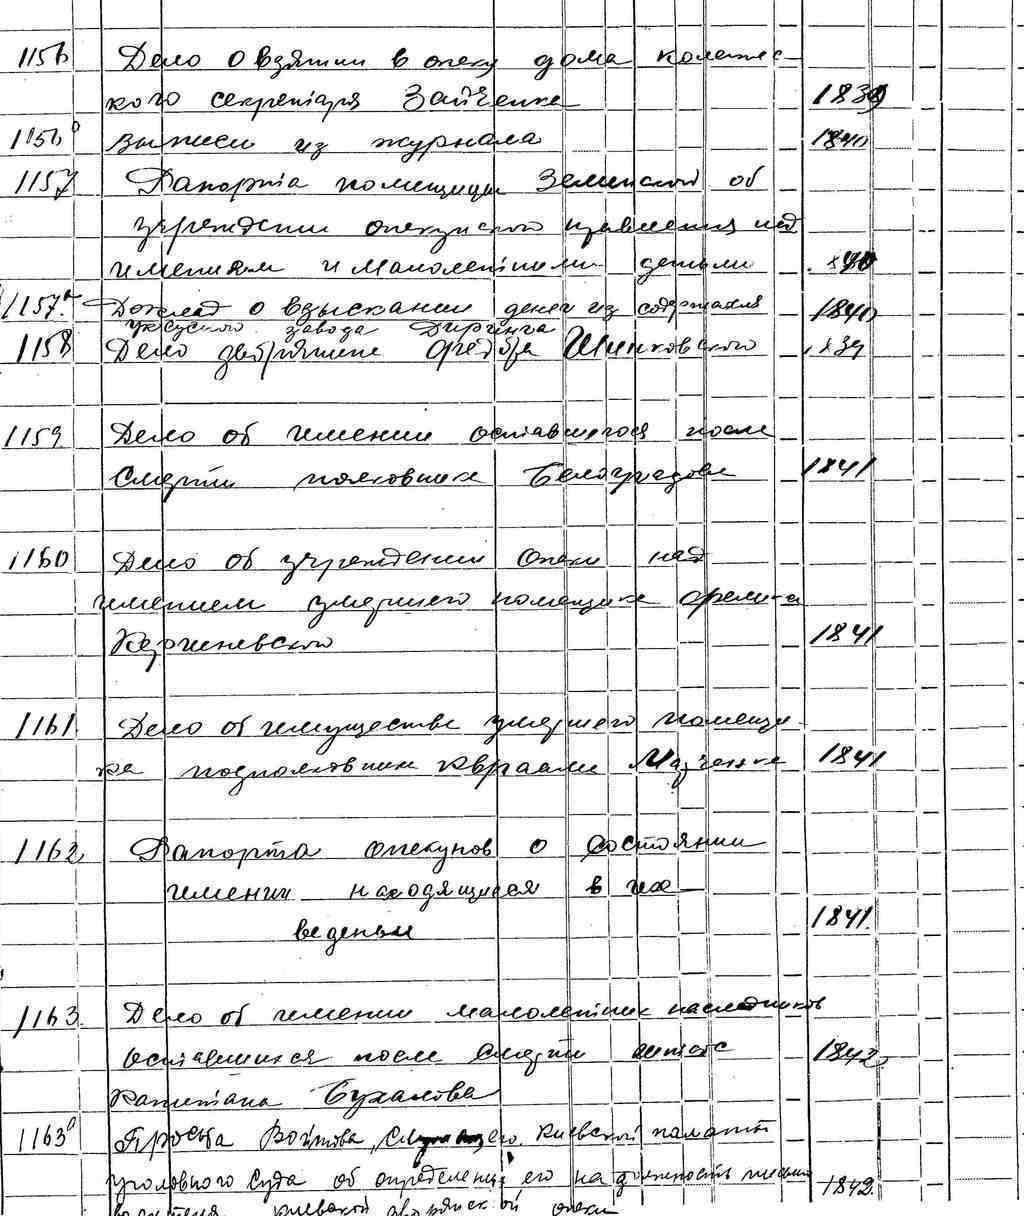 1156 Дело о взятии в опеку дома коллежс-
кого секретаря Зайченка 1839
1156а Выписи из журнала 1840
1157 Рапорта помещицы Земинской об
учреждении опекунского правления над
имением и малолетними детьми 1840
1157а Доклад о взыскании денег из содержания 1840
уксусного завода Диринга
1158 Дело дворянина Федора Шинковского 1839
1159 Дело об имении оставшегося после
смерти полковника Белоградова 1841
1160 Дело об учреждении опеки над
имением умершего помещика
1841
1161 Дело об имуществе умершего помещи-
ка подполковника Авраама 1841
1162 Рапорта опекунов о состоянии
имении находящиеся в их
веденьи 1841
1163 Дело об имении малолетних наследников
оставшихся после смерти штабс 1842
капитана Бухалова
1163а Просьба Войтова, служащего Киевской палаты
уголовного суда об определении его на должность письмо 1842
водителя киевской дворянской опеки